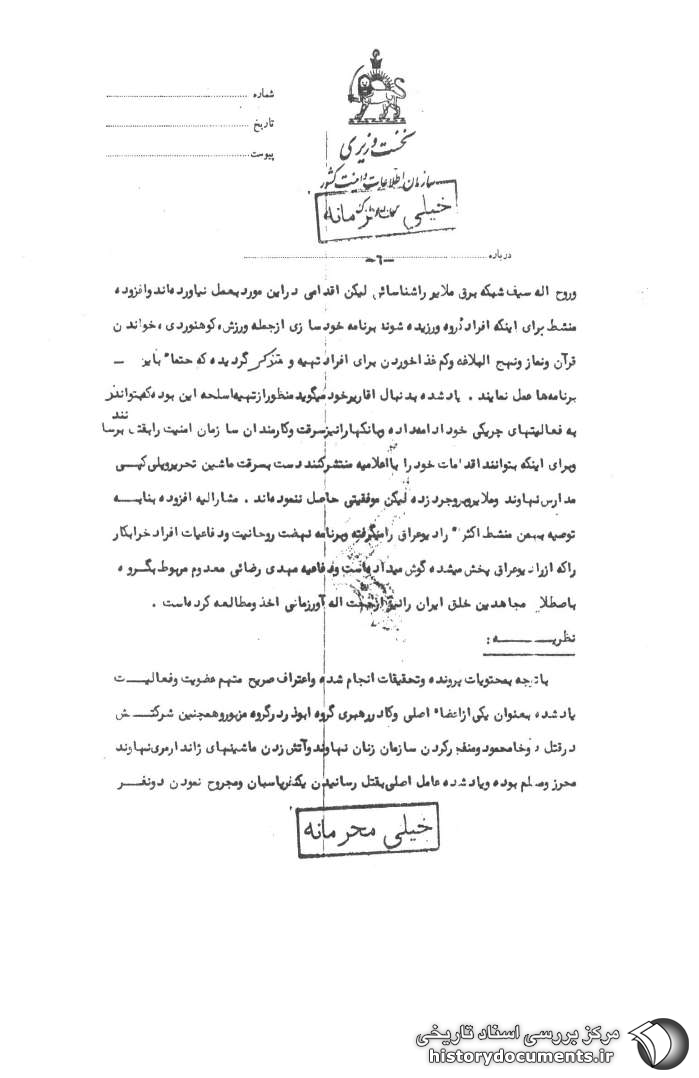 شماره
تاریخ
پیوست
نخست وزیری
سازمان اطلاعات و امنیت کشور
خیلی محرمانه
درباره
-٦-
وروح اله سیف شبکه برق ملایر راشناسائی لیکن اقدامی دراین مورد بعمل نیاورده‌اند وافزوده
منشط برای اینکه افراد گروه ورزیده شوند برنامه خودسازی ازجمله ورزش، کوهنوردی، خواندن
قرآن ونماز ونهج البلاغه وکم غذا خوردن برای افراد تهیه و متذکر گردیده که حتما" باین
برنامه‌ها عمل نمایند . یادشده بدنبال اقاریر خود میگوید منظور از تهیه اسلحه این بوده که بتوانند
به فعالیتهای چریکی خود ادامه داده وبانکها رانیز سرقت وکارمندان سازمان امنیت را بقتل برسانند
وبرای اینکه بتوانند اقدامات خود را با اعلامیه منتشر کنند دست بسرقت ماشین تحریر وپلی کپی
مدارس نهاوند وملایر وبروجرد زده لیکن موفقیتی حاصل ننموده‌اند . مشارالیه افزوده بنابه
توصیه بهمن منشط اکثرا" رادیو عراق را میگرفته وبرنامه نهضت روحانیت ودفاعیات افراد خرابکار
راکه از رادیو عراق پخش میشده گوش میداده است ودفاعیه مهدی رضائی معدوم مربوط بگروه
باصطلاح مجاهدین خلق ایران رانیز از حجت اله آورزمانی اخذ ومطالعه کرده است .
نظریـــه :
باتوجه بمحتویات پرونده وتحقیقات انجام شده واعتراف صریح متهم عضویت وفعالیت
یادشده بعنوان یکی از اعضاء اصلی وکادر رهبری گروه ابوذر در گروه مزبور وهمچنین شرکتش
درقتل محمود ومنفجر کردن سازمان زنان نهاوند وآتش زدن ماشینهای ژاندارمری نهاوند
محرز ومسلم بوده ویادشده عامل اصلی بقتل رسانیدن یکنفر پاسبان ومجروح نمودن دونفر
خیلی محرمانه
مرکز بررسی اسناد تاریخی
historydocuments.ir